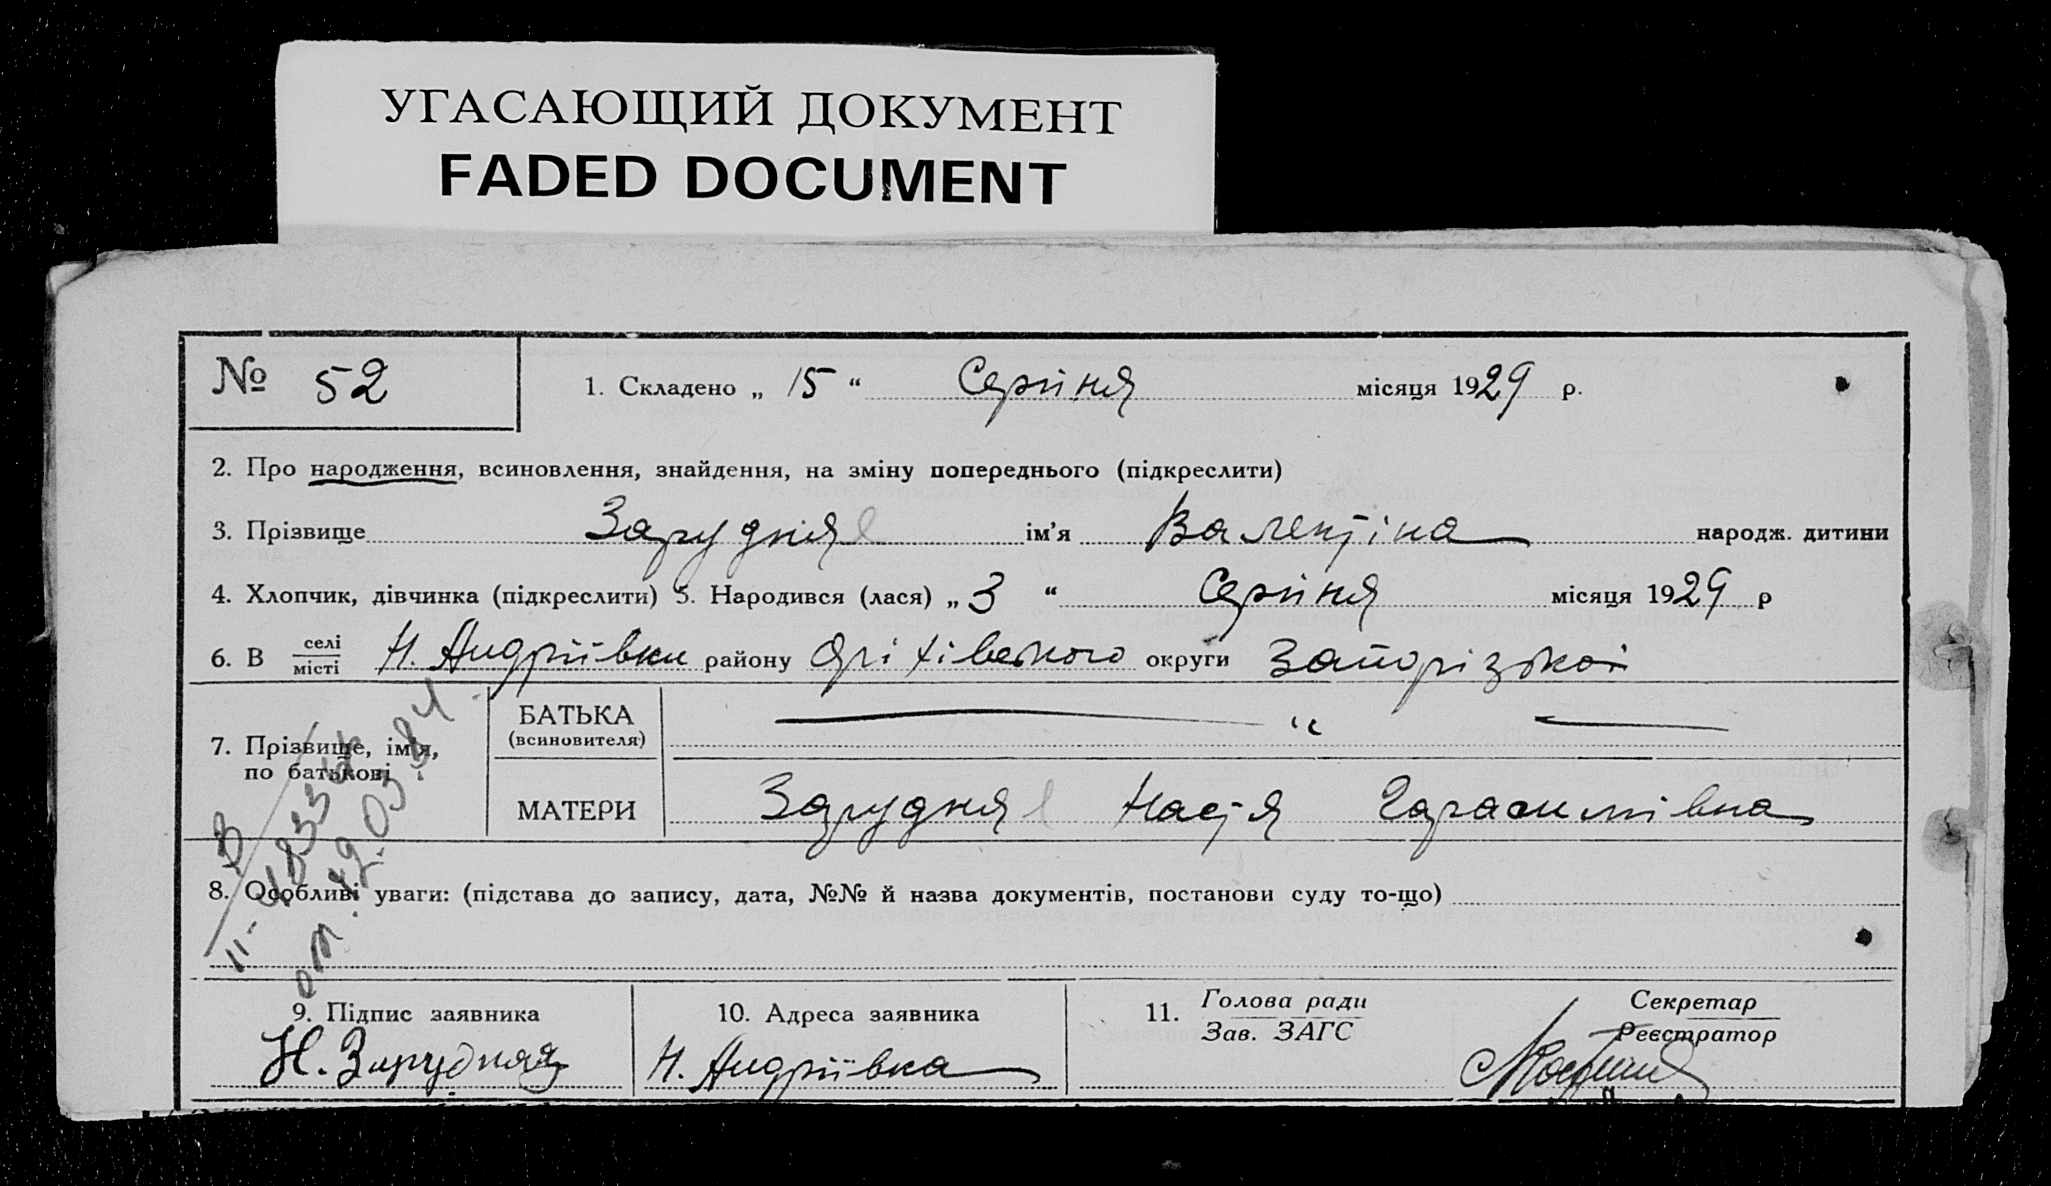 УГАСАЮЩИЙ ДОКУМЕНТ
FADED DOCUMENT
№ 52
1. Складено „ 15 “ Серпня місяця 1929 р.
2. Про народження, всиновлення, знайдення, на зміну попереднього (підкреслити)
3. Прізвище Зарудняя ім’я Валентіна народж. дитини
4. Хлопчик, дівчинка (підкреслити) 5. Народився (лася) „ 3 “ Серпня місяця 1929 р
6. В селі / місті Н. Андріївки району Оріхівського округи Запорізької
7. Прізвище, ім’я, по батькові
БАТЬКА (всиновителя) — “ —
МАТЕРИ Зарудняя Настя Гарасимівна
8. Особливі уваги: (підстава до запису, дата, №№ й назва документів, постанови суду то-що)
9. Підпис заявника
Н. Зарудная
10. Адреса заявника
Н. Андріївка
11. Голова ради
Зав. ЗАГС
Секретар
Реєстратор